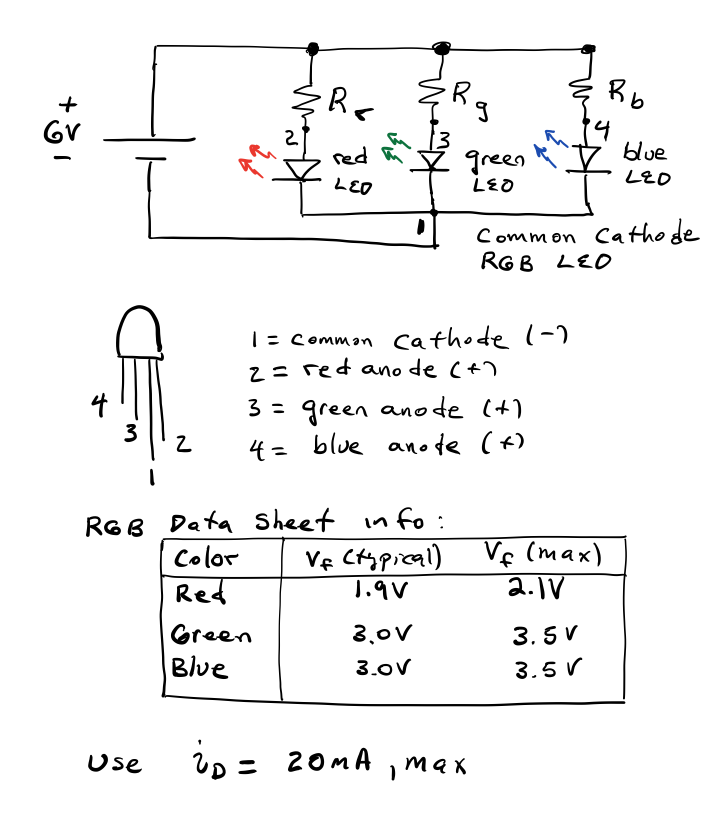 +
6V
−
Rr
Rg
Rb
2
3
4
red
LED
green
LED
blue
LED
1
Common Cathode
RGB LED
4
3
2
1
1 = common cathode (-)
2 = red anode (+)
3 = green anode (+)
4 = blue anode (+)
RGB Data Sheet info:
Color Vf (typical) Vf (max)
Red 1.9V 2.1V
Green 3.0V 3.5V
Blue 3.0V 3.5V
Use iD = 20mA, max